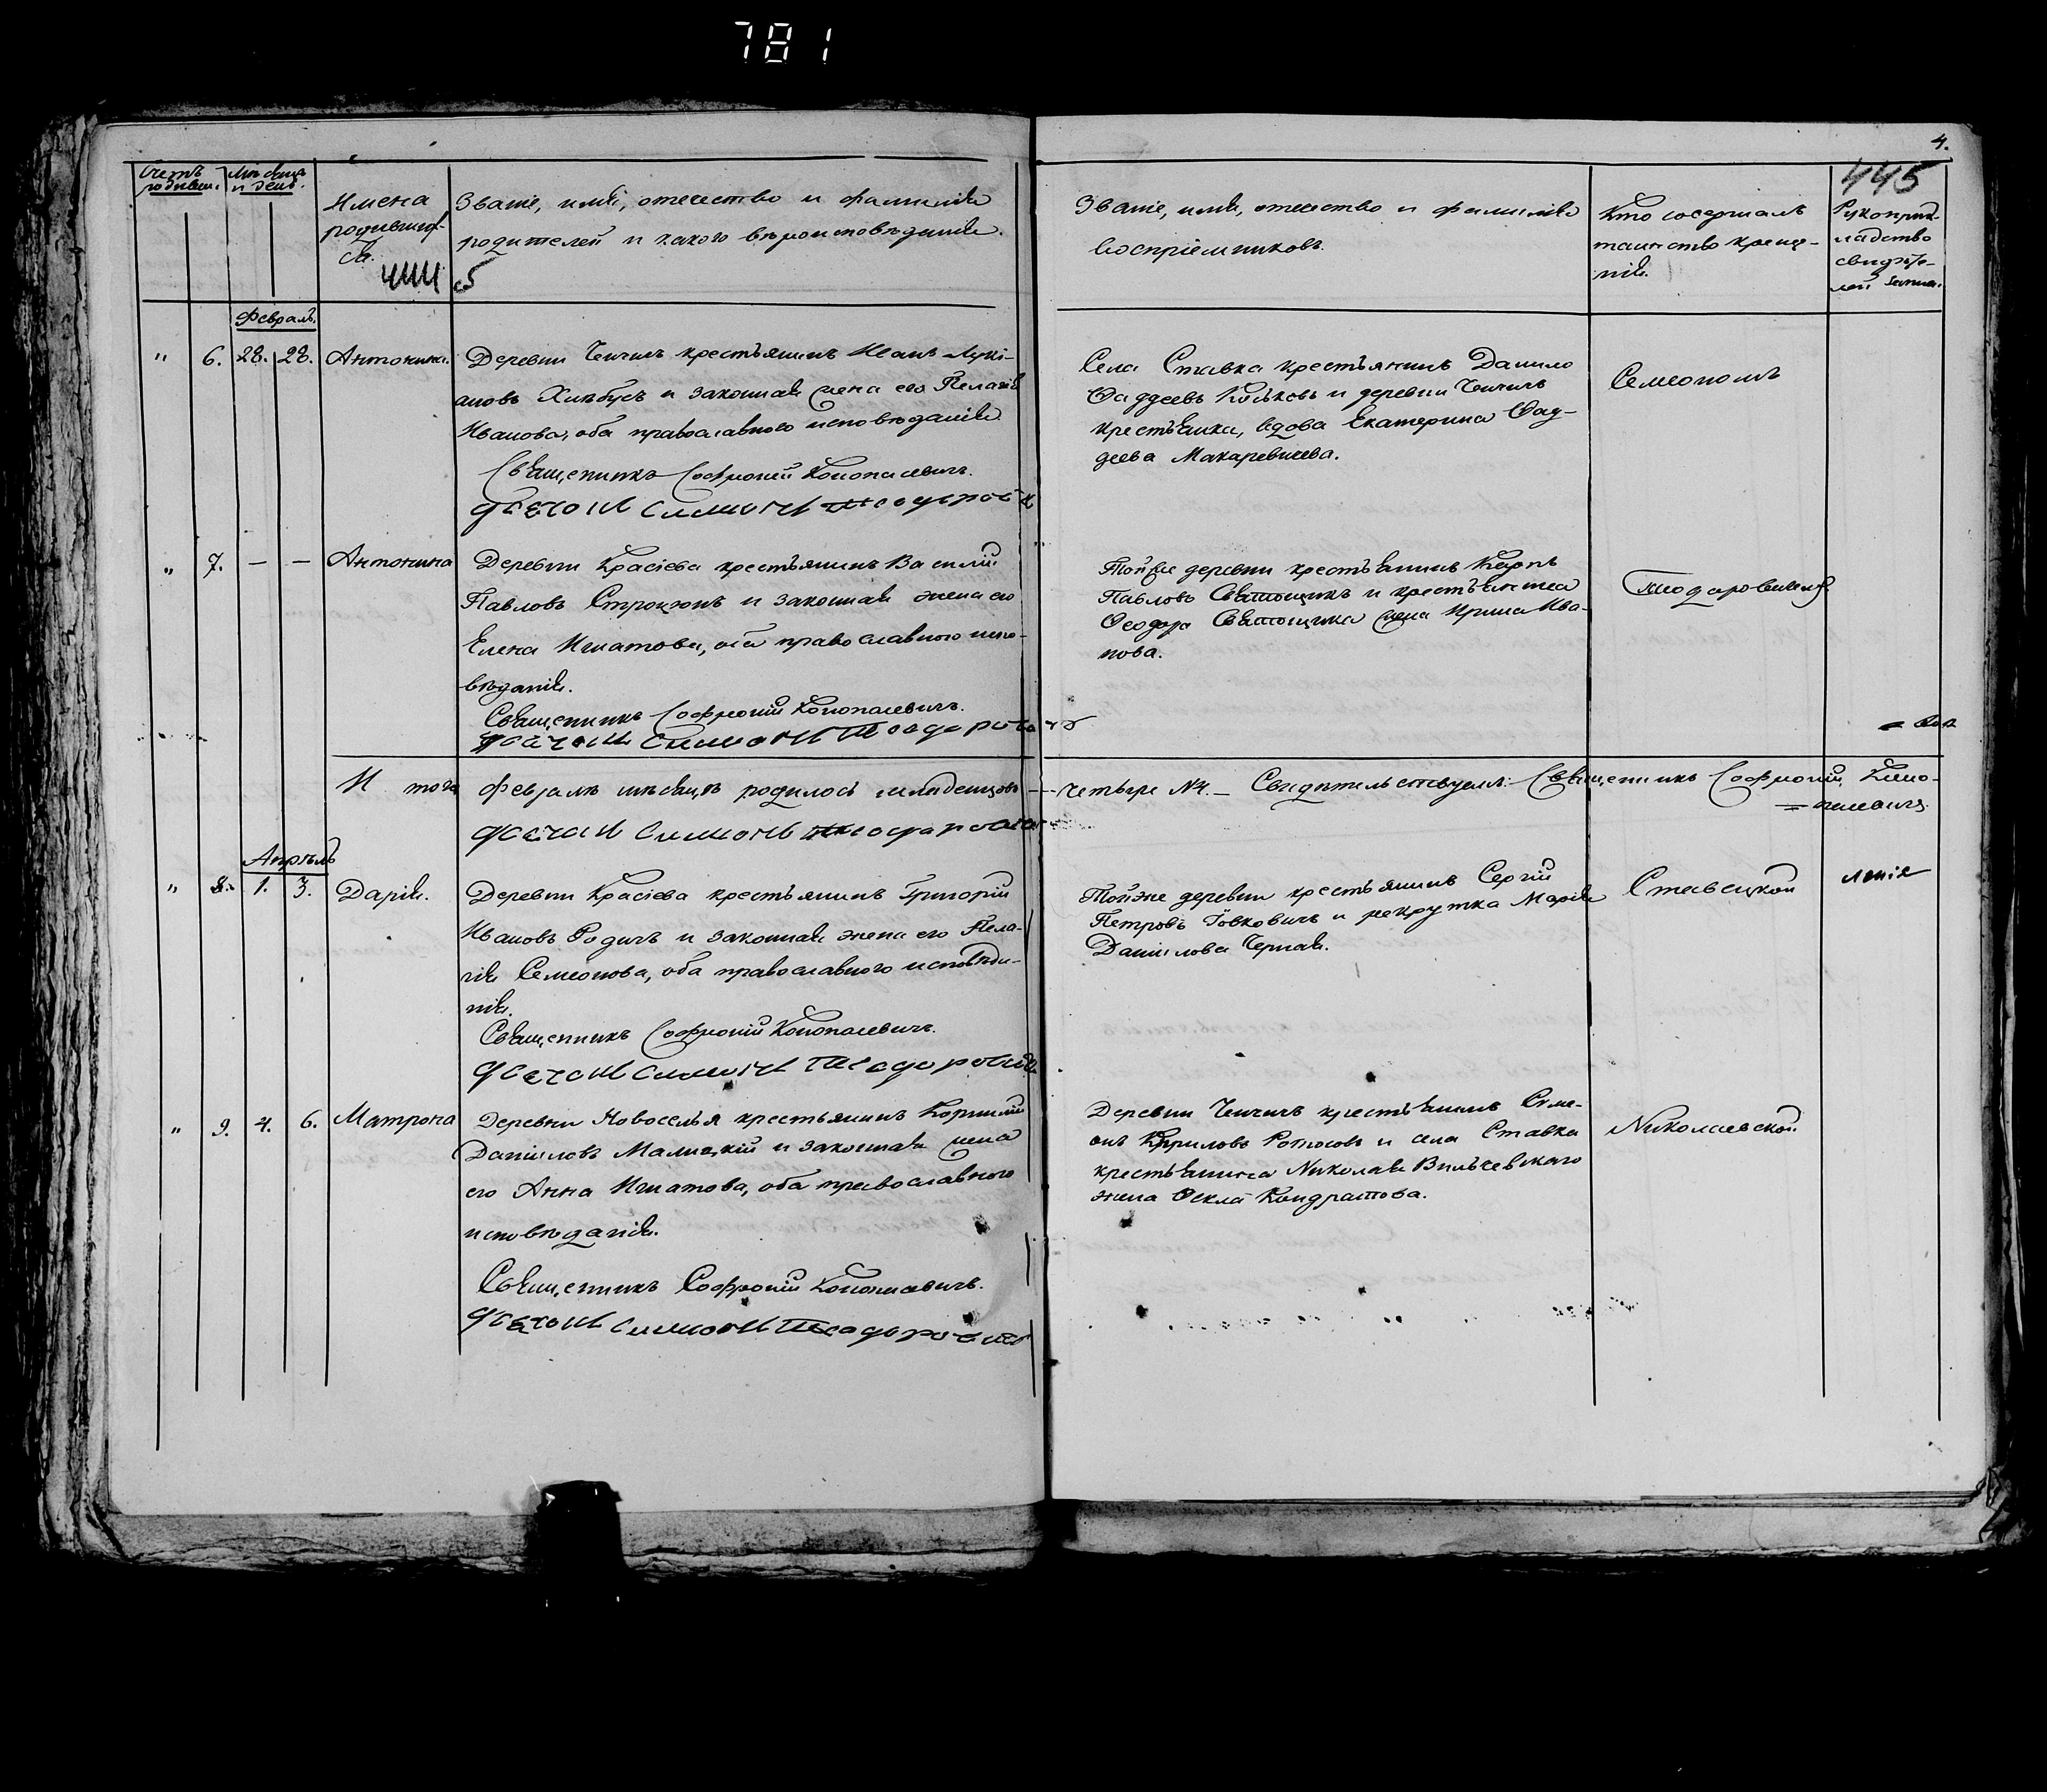 781
4.
445
Счетъ родивш.
Мѣсяцъ и день.
Имена
родивших-
ся.
Званіе, имя, отечество и фамилія
родителей и какого вѣроисповѣданія.
Званіе, имя, отечество и фамилія
воспріемниковъ.
Кто совершалъ
таинство креще-
нія.
Рукоприк-
ладство
свидѣте-
лей
5
Февраль.
" 6. 28. 28. Антонина.
Деревни Чемчилъ крестьянинъ Иванъ Луки-
ановъ и законная жена его Пелагія
Иванова, оба православнаго исповѣданія
Священникъ Софроній Конопасевичъ.
Дьячокъ Симеонъ Теодорович
Села Ставка крестьянинъ Данило
Фаддеевъ и деревни
крестьянка, вдова Екатерина Фад-
деева Макаревичева.
Семеономъ
" 7. — — Антонина
Деревни Красіева крестьянинъ Василій
Павловъ и законная жена его
Елена Игнатова, оба православнаго испо-
вѣданія.
Священникъ Софроній Конопасевичъ.
Дьячокъ Симеонъ Теодорович
Тойже деревни крестьянинъ Карпъ
Павловъ Святощикъ и крестьянина
Ѳеодора Святощика жена Ирина Ива-
нова.
Теодоровичемъ
И того Февралѣ мѣсяцѣ родилось младенцовъ — четыре №4. — Свидѣтельствуемъ: Священникъ Софроній Коно-
=пасевичъ.
Дьячокъ Симеонъ Теодорович
Апрѣль
" 8. 1. 3. Дарія.
Деревни Красіева крестьянинъ Григорій
Ивановъ Родичъ и законная жена его Пела-
гія Семеонова, оба православнаго исповѣда-
нія.
Священникъ Софроній Конопасевичъ.
Дьячокъ Симеонъ Теодорович
Тойже деревни крестьянинъ Сергій
Петровъ Іовковичъ и рекрутка Марія
Даниилова Черная.
Ставецкой
" 9. 4. 6. Матрона
Деревни Новоселья крестьянинъ Корнилій
Данииловъ Малицкій и законная жена
его Анна Игнатова, оба православнаго
исповѣданія.
Священникъ Софроній Конопасевичъ.
Дьячокъ Симеонъ Теодорович
Деревни крестьянинъ Симе-
онъ Кириловъ и села Ставка
крестьянина Николая Вильчевскаго
жена Ѳекла Кондратова.
Николаевской